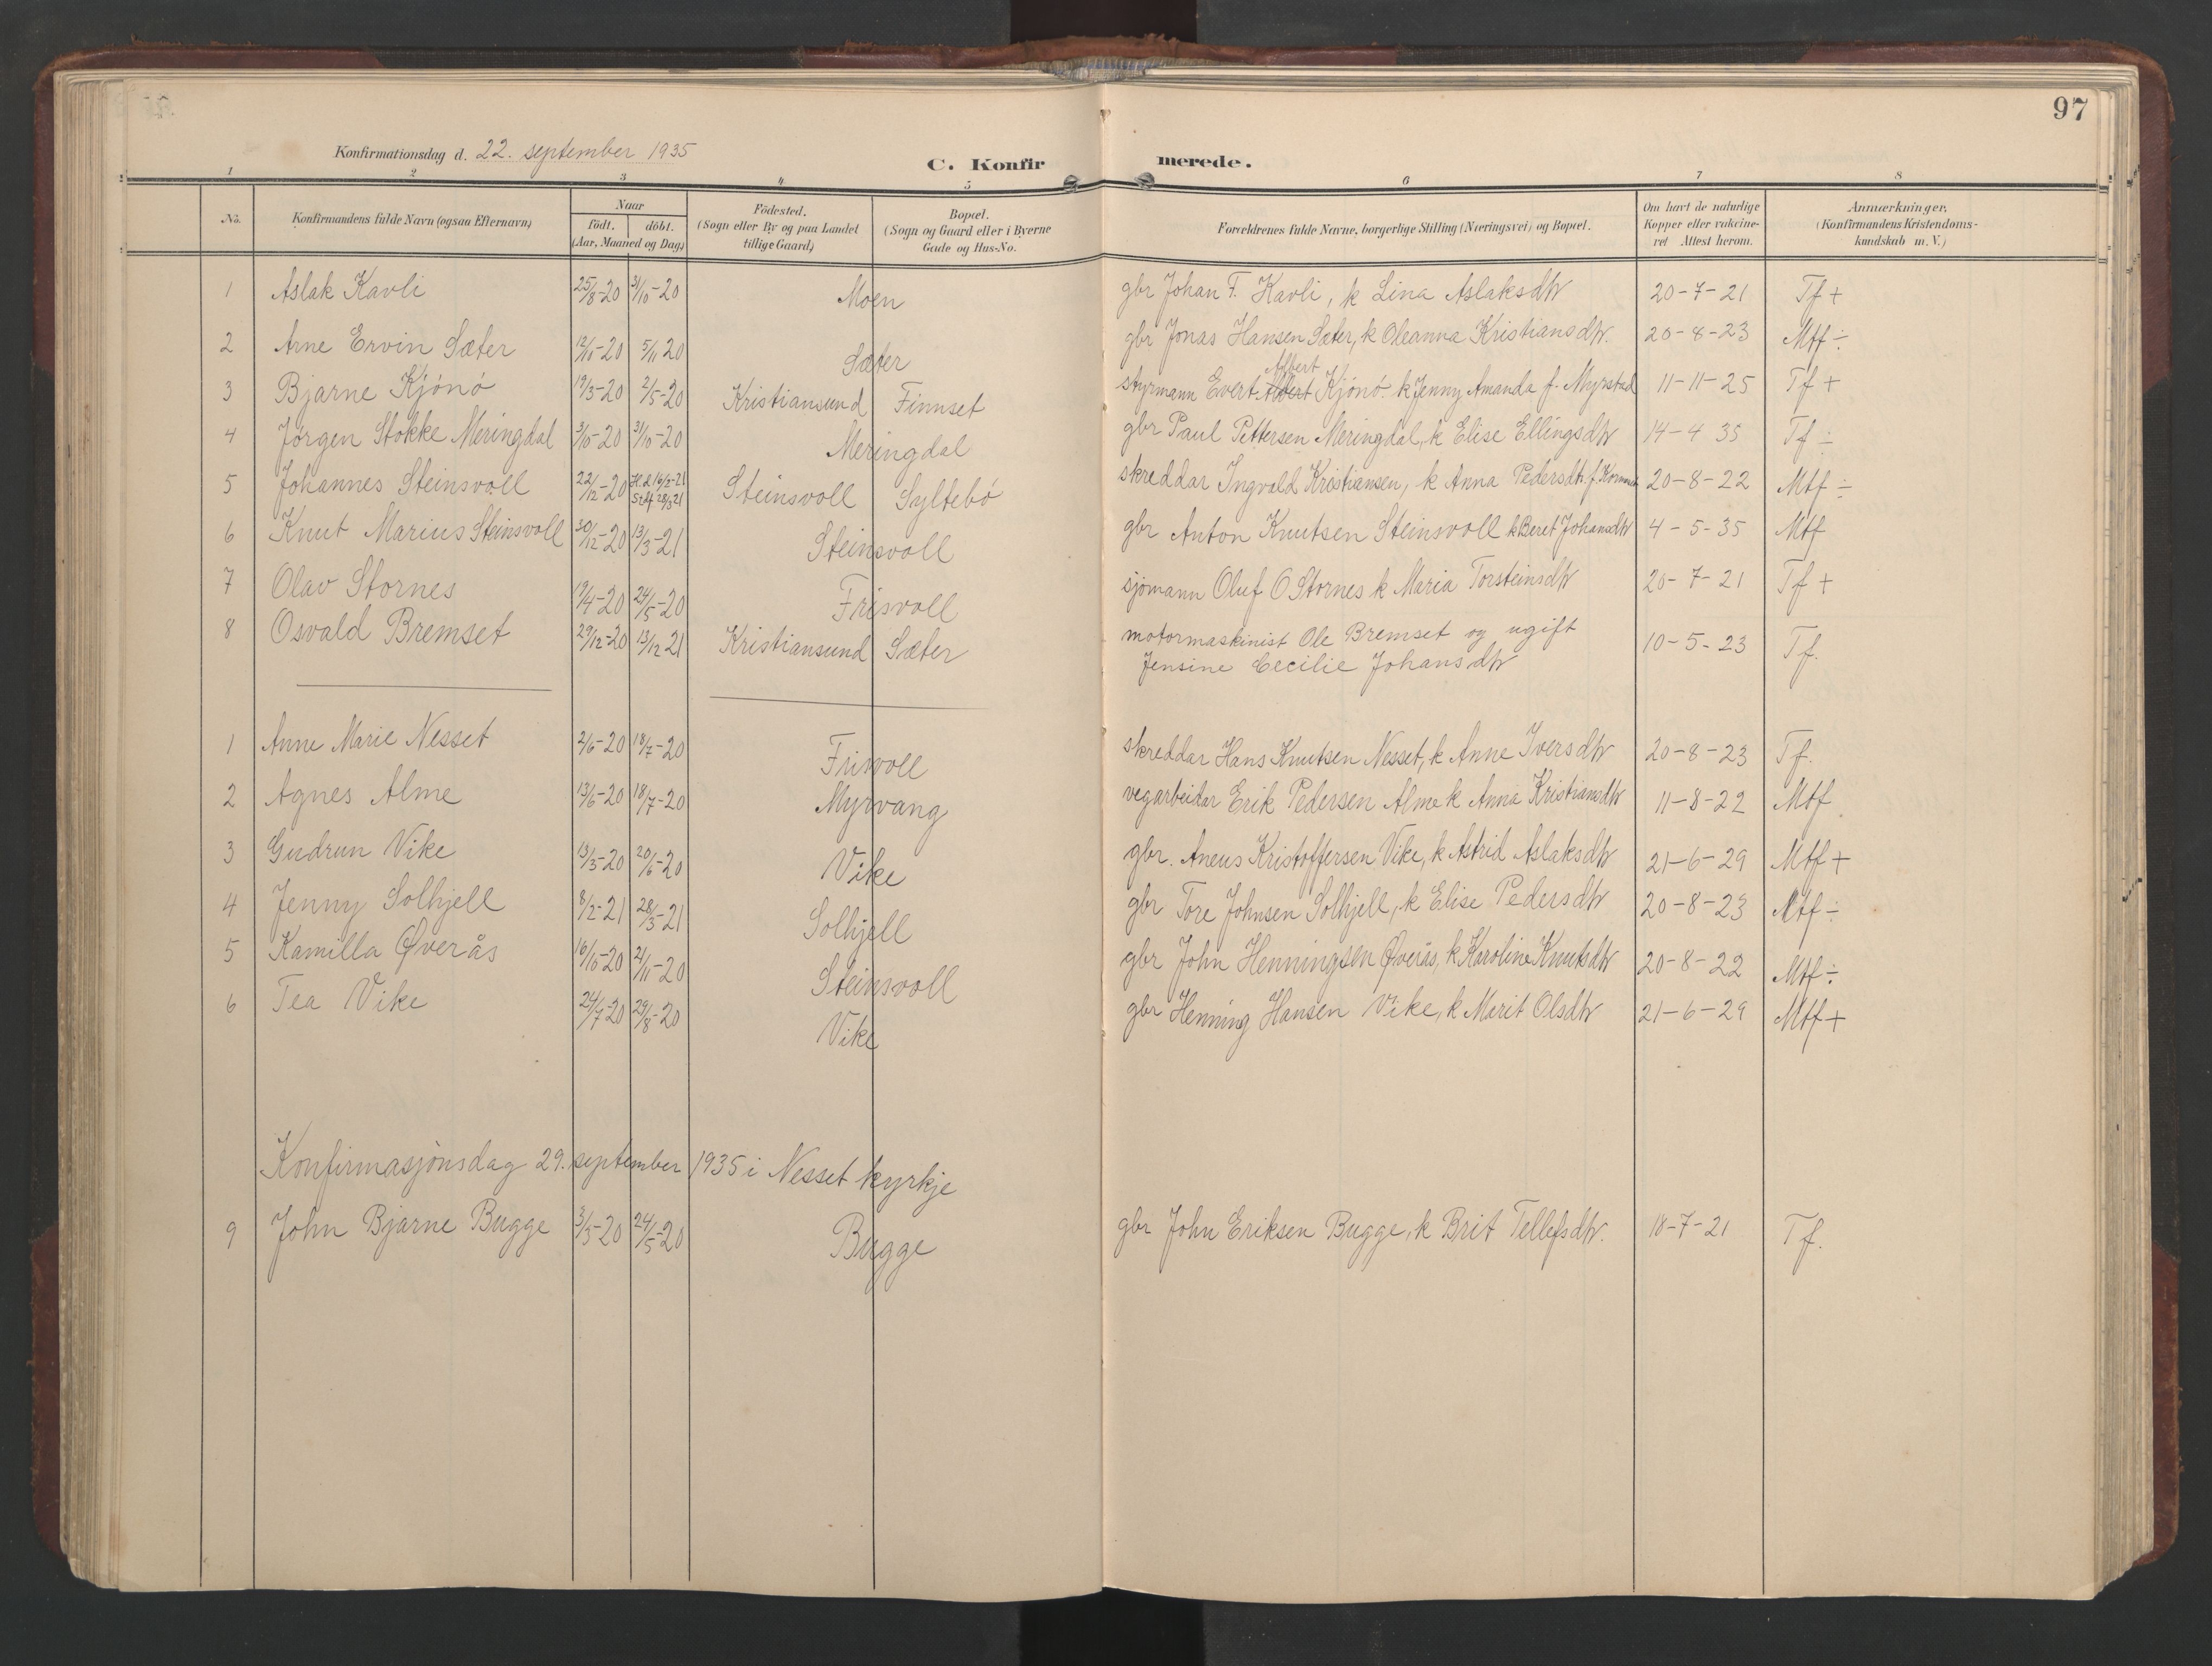 97
Konfirmationsdag d. 22. september 1935
C. Konfirmerede.
1 2 3 4 5 6 7 8
No. Konfirmandens fulde Navn (ogsaa Efternavn) Naar födt. döbt. (Aar, Maaned og Dag) Födested. (Sogn eller By og paa Landet tillige Gaard) Bopæl. (Sogn og Gaard eller i Byerne Gade og Hus-No. Forældrenes fulde Navne, borgerlige Stilling (Næringsvei) og Bopæl. Om havt de naturlige Kopper eller vakcineret Attest herom. Anmærkninger. (Konfirmandens Kristendomskundskab m. V.)
1 Aslak Kavli 25/8-20 31/10-20 Moen gbr Johan F. Kavli, k Lina Aslaksdtr 20-7-21 Tf +
2 Arne Ervin Sæter 12/10-20 5/11 20 Sæter gbr Jonas Hansen Sæter, k Oleanna Kristiansdtr. 20-8-23 Mtf ÷
3 Bjarne Kjönö 19/3-20 2/5-20 Kristiansund Finnset styrmann Evert Albert Kjönö k Jenny Amanda f. Myrstad 11-11-25 Tf +
4 Jørgen Stokke Meringdal 3/10-20 31/10-20 Meringdal gbr Paul Pettersen Meringdal, k Elise Ellingsdtr 14-4 35 Tf ÷
5 Johannes Steinsvoll 22/12-20 H.d. 16/2-21 St.df 28/3 21 Steinsvoll Syltebö skreddar Ingvald Kristiansen, k Anna Pedersdtr. 20-8-22 Mtf ÷
6 Knut Marius Steinsvoll 30/12-20 13/3-21 Steinsvoll gbr Anton Knutsen Steinsvoll k Beret Johansdtr 4-5-35 Mtf
7 Olav Stornes 19/4-20 24/5-20 Frisvoll sjömann Oluf O Stornes k Maria Torsteinsdtr 20-7-21 Tf +
8 Osvald Bremset 29/12-20 13/12 21 Kristiansund Sæter motormaskinist Ole Bremset og ugift
Jensine Cecilie Johansdtr 10-5-23 Tf.
1 Anne Marie Nesset 2/6-20 18/7-20 Frisvoll skreddar Hans Knutsen Nesset, k Anne Iversdtr 20-8-23 Tf.
2 Agnes Alme 13/6-20 18/7-20 Myrvang vegarbeidar Erik Pedersen Alme k Anna Kristiansdtr 11-8-22 Mtf.
3 Gudrun Vike 13/5-20 20/6-20 Vike gbr. Aneus Kristoffersen Vike, k Astrid Aslaksdtr 21-6-29 Mtf +
4 Jenny Solhjell 8/2-21 28/3-21 Solhjell gbr Tore Johnsen Solhjell, k Elise Pedersdtr 20-8-23 Mtf ÷
5 Kamilla Øverås 16/10-20 21/11-20 Steinsvoll gbr John Henningsen Øverås, k Karoline Knutsdtr 20-8-22 Mtf ÷
6 Tea Vike 24/7-20 29/8-20 Vike gbr Henning Hansen Vike, k Marit Olsdtr 21-6-29 Mtf +
Konfirmasjonsdag 29. september 1935 i Nesset kyrkje
9 John Bjarne Bugge 3/3-20 24/5-20 Bugge gbr John Eriksen Bugge, k Brit Tellefsdtr. 18-7-21 Tf.